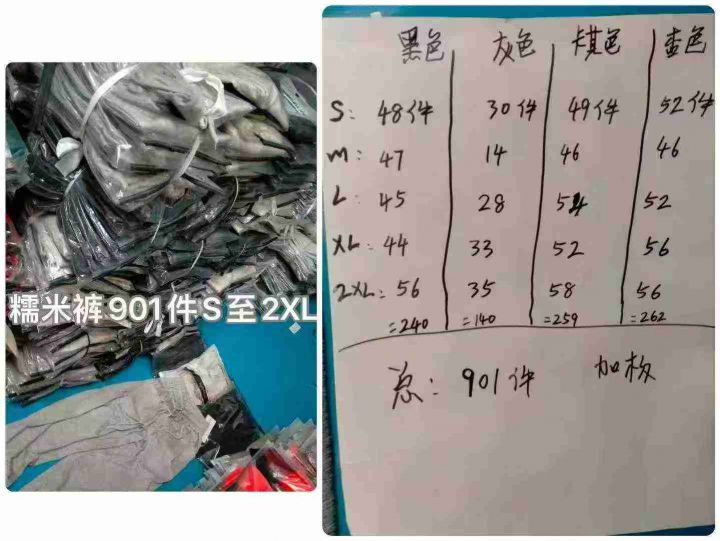 糯米裤901件S至2XL
黑色 灰色 卡其色 蓝色
S: 48件 30件 49件 52件
M: 47 14 46 46
L: 45 28 54 52
XL: 44 33 52 56
2XL: 56 35 58 56
=240 =140 =259 =262
总: 901件 加板